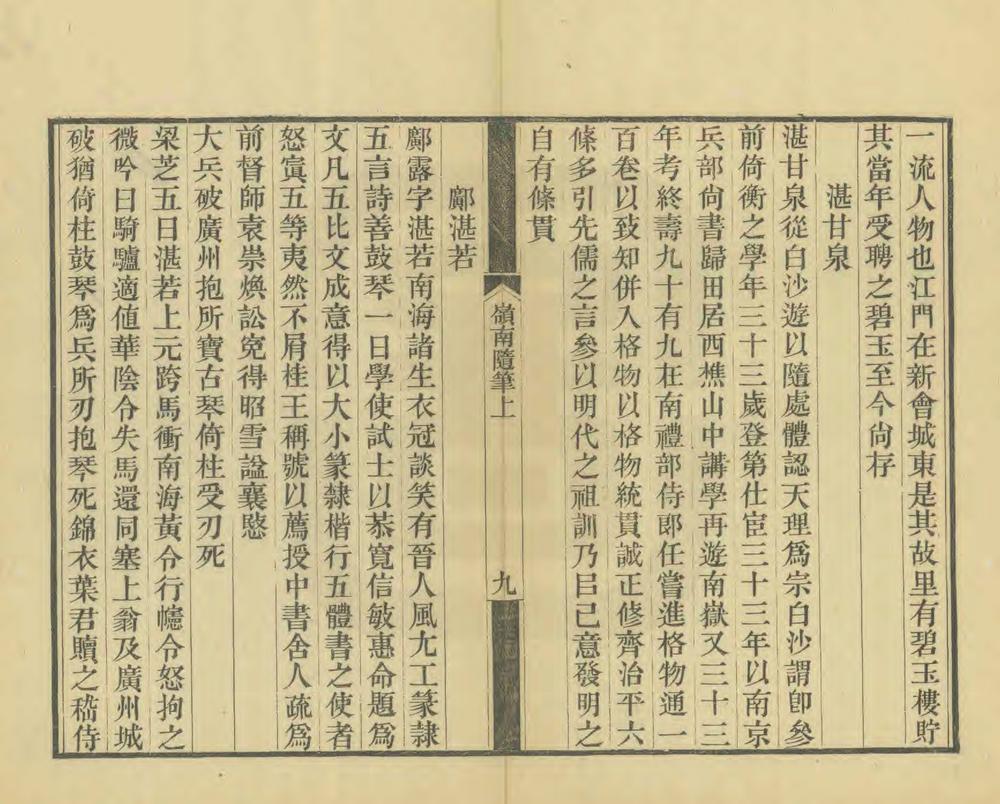 一流人物也江門在新會城東是其故里有碧玉樓貯
其當年受聘之碧玉至今尙存
湛甘泉
湛甘泉從白沙遊以隨處體認天理爲宗白沙謂卽參
前倚衡之學年三十三歲登第仕宦三十三年以南京
兵部尙書歸田居西樵山中講學再遊南嶽又三十三
年考終壽九十有九在南禮部侍郎任嘗進格物通一
百卷以致知併入格物以格物統貫誠正修齊治平六
條多引先儒之言參以明代之祖訓乃㠯己意發明之
自有條貫
嶺南隨筆上
九
鄺湛若
鄺露字湛若南海諸生衣冠談笑有晉人風尤工篆隷
五言詩善鼓琴一日學使試士以恭寬信敏惠命題爲
文凡五比文成意得以大小篆隷楷行五體書之使者
怒寘五等夷然不屑桂王稱號以薦授中書舍人疏爲
前督師袁崇煥訟寃得昭雪諡襄愍
大兵破廣州抱所寶古琴倚柱受刃死
梁芝五曰湛若上元跨馬衝南海黃令行幰令怒拘之
微吟曰騎驢適値華陰令失馬還同塞上翁及廣州城
破猶倚柱鼓琴爲兵所刃抱琴死錦衣葉君贖之嵇侍